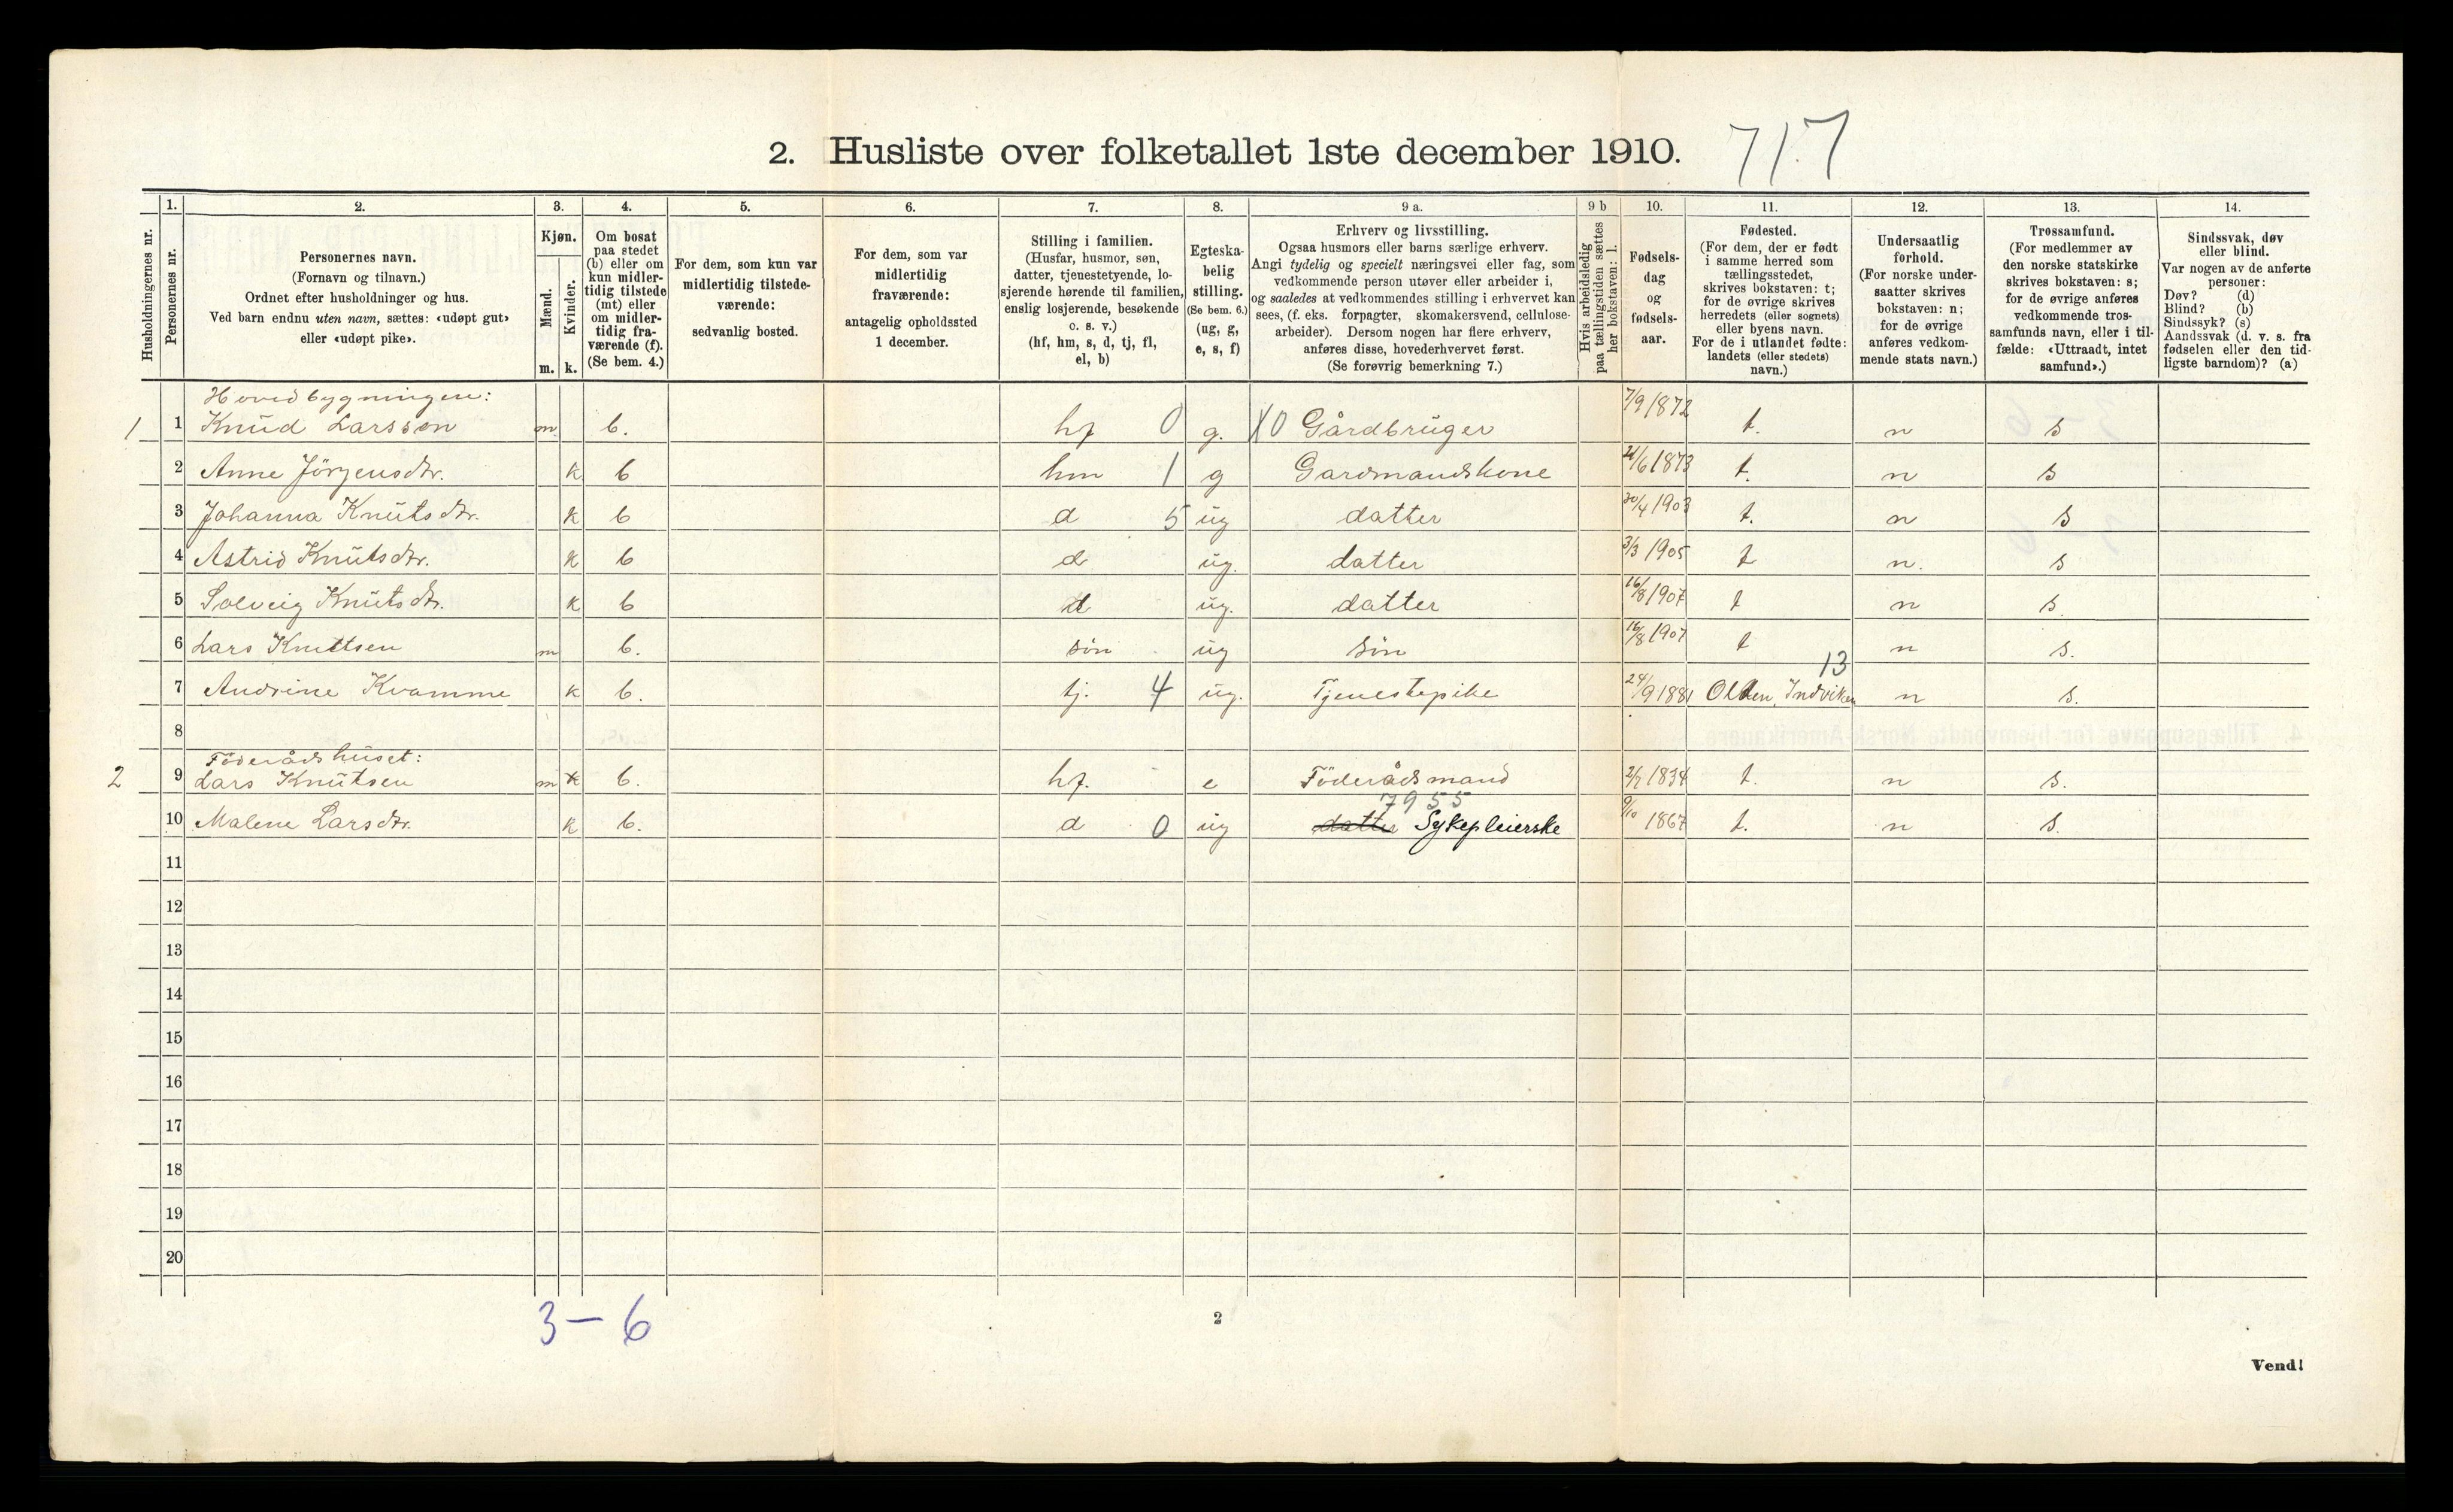 2. Husliste over folketallet 1ste december 1910. 717
Husholdningernes nr.
1.
Personernes nr.
2.
Personernes navn.
(Fornavn og tilnavn.)
Ordnet efter husholdninger og hus.
Ved barn endnu uten navn, sættes: «udøpt gut»
eller «udøpt pike».
3.
Kjøn.
Mænd.
Kvinder.
m. k.
4.
Om bosat
paa stedet
(b) eller om
kun midler-
tidig tilstede
(mt) eller
om midler-
tidig fra-
værende (f).
(Se bem. 4.)
5.
For dem, som kun var
midlertidig tilstede-
værende:
sedvanlig bosted.
6.
For dem, som var
midlertidig
fraværende:
antagelig opholdssted
1 december.
7.
Stilling i familien.
(Husfar, husmor, søn,
datter, tjenestetyende, lo-
sjerende hørende til familien,
enslig losjerende, besøkende
o. s. v.)
(hf, hm, s, d, tj, fl,
el, b)
8.
Egteska-
belig
stilling.
(Se bem. 6.)
(ug, g,
e, s, f)
9 a.
Erhverv og livsstilling.
Ogsaa husmors eller barns særlige erhverv.
Angi tydelig og specielt næringsvei eller fag, som
vedkommende person utøver eller arbeider i,
og saaledes at vedkommendes stilling i erhvervet kan
sees, (f. eks. forpagter, skomakersvend, cellulose-
arbeider). Dersom nogen har flere erhverv,
anføres disse, hovederhvervet først.
(Se forøvrig bemerkning 7.)
9 b
Hvis arbeidsledig
paa tællingstiden sættes
her bokstaven: l.
10.
Fødsels-
dag
og
fødsels-
aar.
11.
Fødested.
(For dem, der er født
i samme herred som
tællingsstedet,
skrives bokstaven: t;
for de øvrige skrives
herredets (eller sognets)
eller byens navn.
For de i utlandet fødte:
landets (eller stedets)
navn.)
12.
Undersaatlig
forhold.
(For norske under-
saatter skrives
bokstaven: n;
for de øvrige
anføres vedkom-
mende stats navn.)
13.
Trossamfund.
(For medlemmer av
den norske statskirke
skrives bokstaven: s;
for de øvrige anføres
vedkommende tros-
samfunds navn, eller i til-
fælde: «Uttraadt, intet
samfund».)
14.
Sindssvak, døv
eller blind.
Var nogen av de anførte
personer:
Døv? (d)
Blind? (b)
Sindssyk? (s)
Aandssvak (d. v. s. fra
fødselen eller den tid-
ligste barndom)? (a)
Hovedbygningen:
1 1 Knud Larssen m b. hf 0 g. X0 Gårdbruger 7/9 1872 t. n s
2 Anne Jörgensdtr. k b hm 1 g Gardmandskone 21/6 1873 t. n s
3 Johanna Knutsdtr. k b d 5 ug datter 30/4 1903 t. n s
4 Astrid Knutsdtr. k b d ug. datter 3/3 1905 t n. s
5 Solveig Knutsdtr. k b d ug. datter 16/8 1907 t n s.
6 Lars Knutsen m b. sön ug sön 16/8 1907 t n s.
13
7 Andrine Kvamme k b. tj. 4 ug. Tjenestepike 24/9 1881 Olden, Indviken n s.
8
Föderådshuset:
2 9 Lars Knutsen m k b. hf. e Föderådsmand 2/7 1834 t. n s.
7955
10 Malene Larsdtr. k b. d 0 ug datter Sykepleierske 9/10 1867 t. n s.
11
12
13
14
15
16
17
18
19
20
3 – 6
2
Vend!